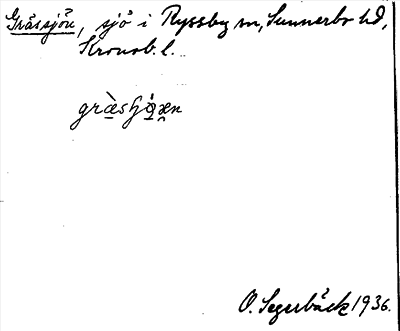 Gråssjön, sjö i Ryssby sn, Sunnerbo hd,
Kronob. l.
O. Segerbäck 1936.